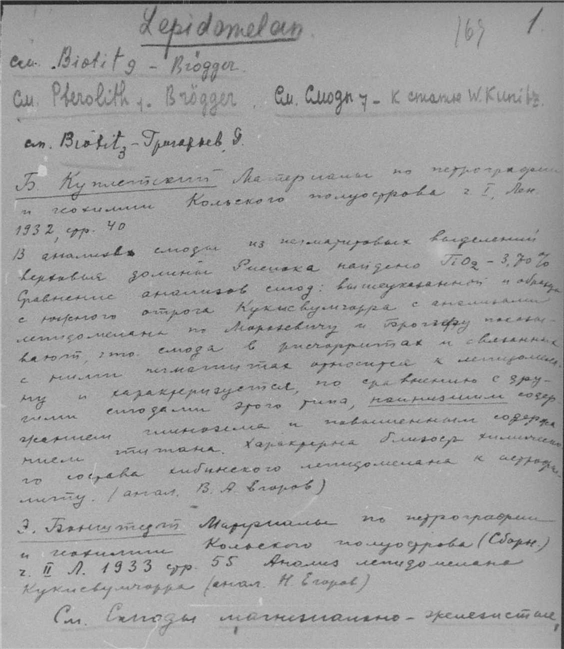 Lepidomelan
169 1.
см. Biotit 9 - Brögger.
См. Pterolith 7. Brögger. См. Слюды 7 - к статье W. Kunitz.
см. Biotit 3 - Григорьев, Д.
Б. Куплетский Материалы по петрографии
и геохимии Кольского полуострова ч I, Лен.
1932, стр. 40
В анализах слюды из пегматитовых выделений
верховья долины Рисиока найдено TiO2 - 3,70%
Сравнение анализов слюд: вышеуказанной и образца
с южного отрога Кукисвумчорра с анализами
лепидомелана по Морозевичу и Брэггеру показы-
вают, что слюда в рисчорритах и связанных
с ними пегматитах относится к лепидомела-
ну и характеризуется, по сравнению с дру-
гими слюдами этого типа, наинизшим содер
жанием глинозема и повышенным содержа
нием титана. Характерна близость химическо
го состава хибинского лепидомелана к
литу. (анал. В. А. Егоров)
Э. Бонштедт Материалы по петрографии
и геохимии Кольского полуострова (Сборн.)
ч. II Л. 1933 стр. 55 Анализ лепидомелана
Кукисвумчорра (анал. Н Егоров)
См. Слюды магнезиально-железистые,